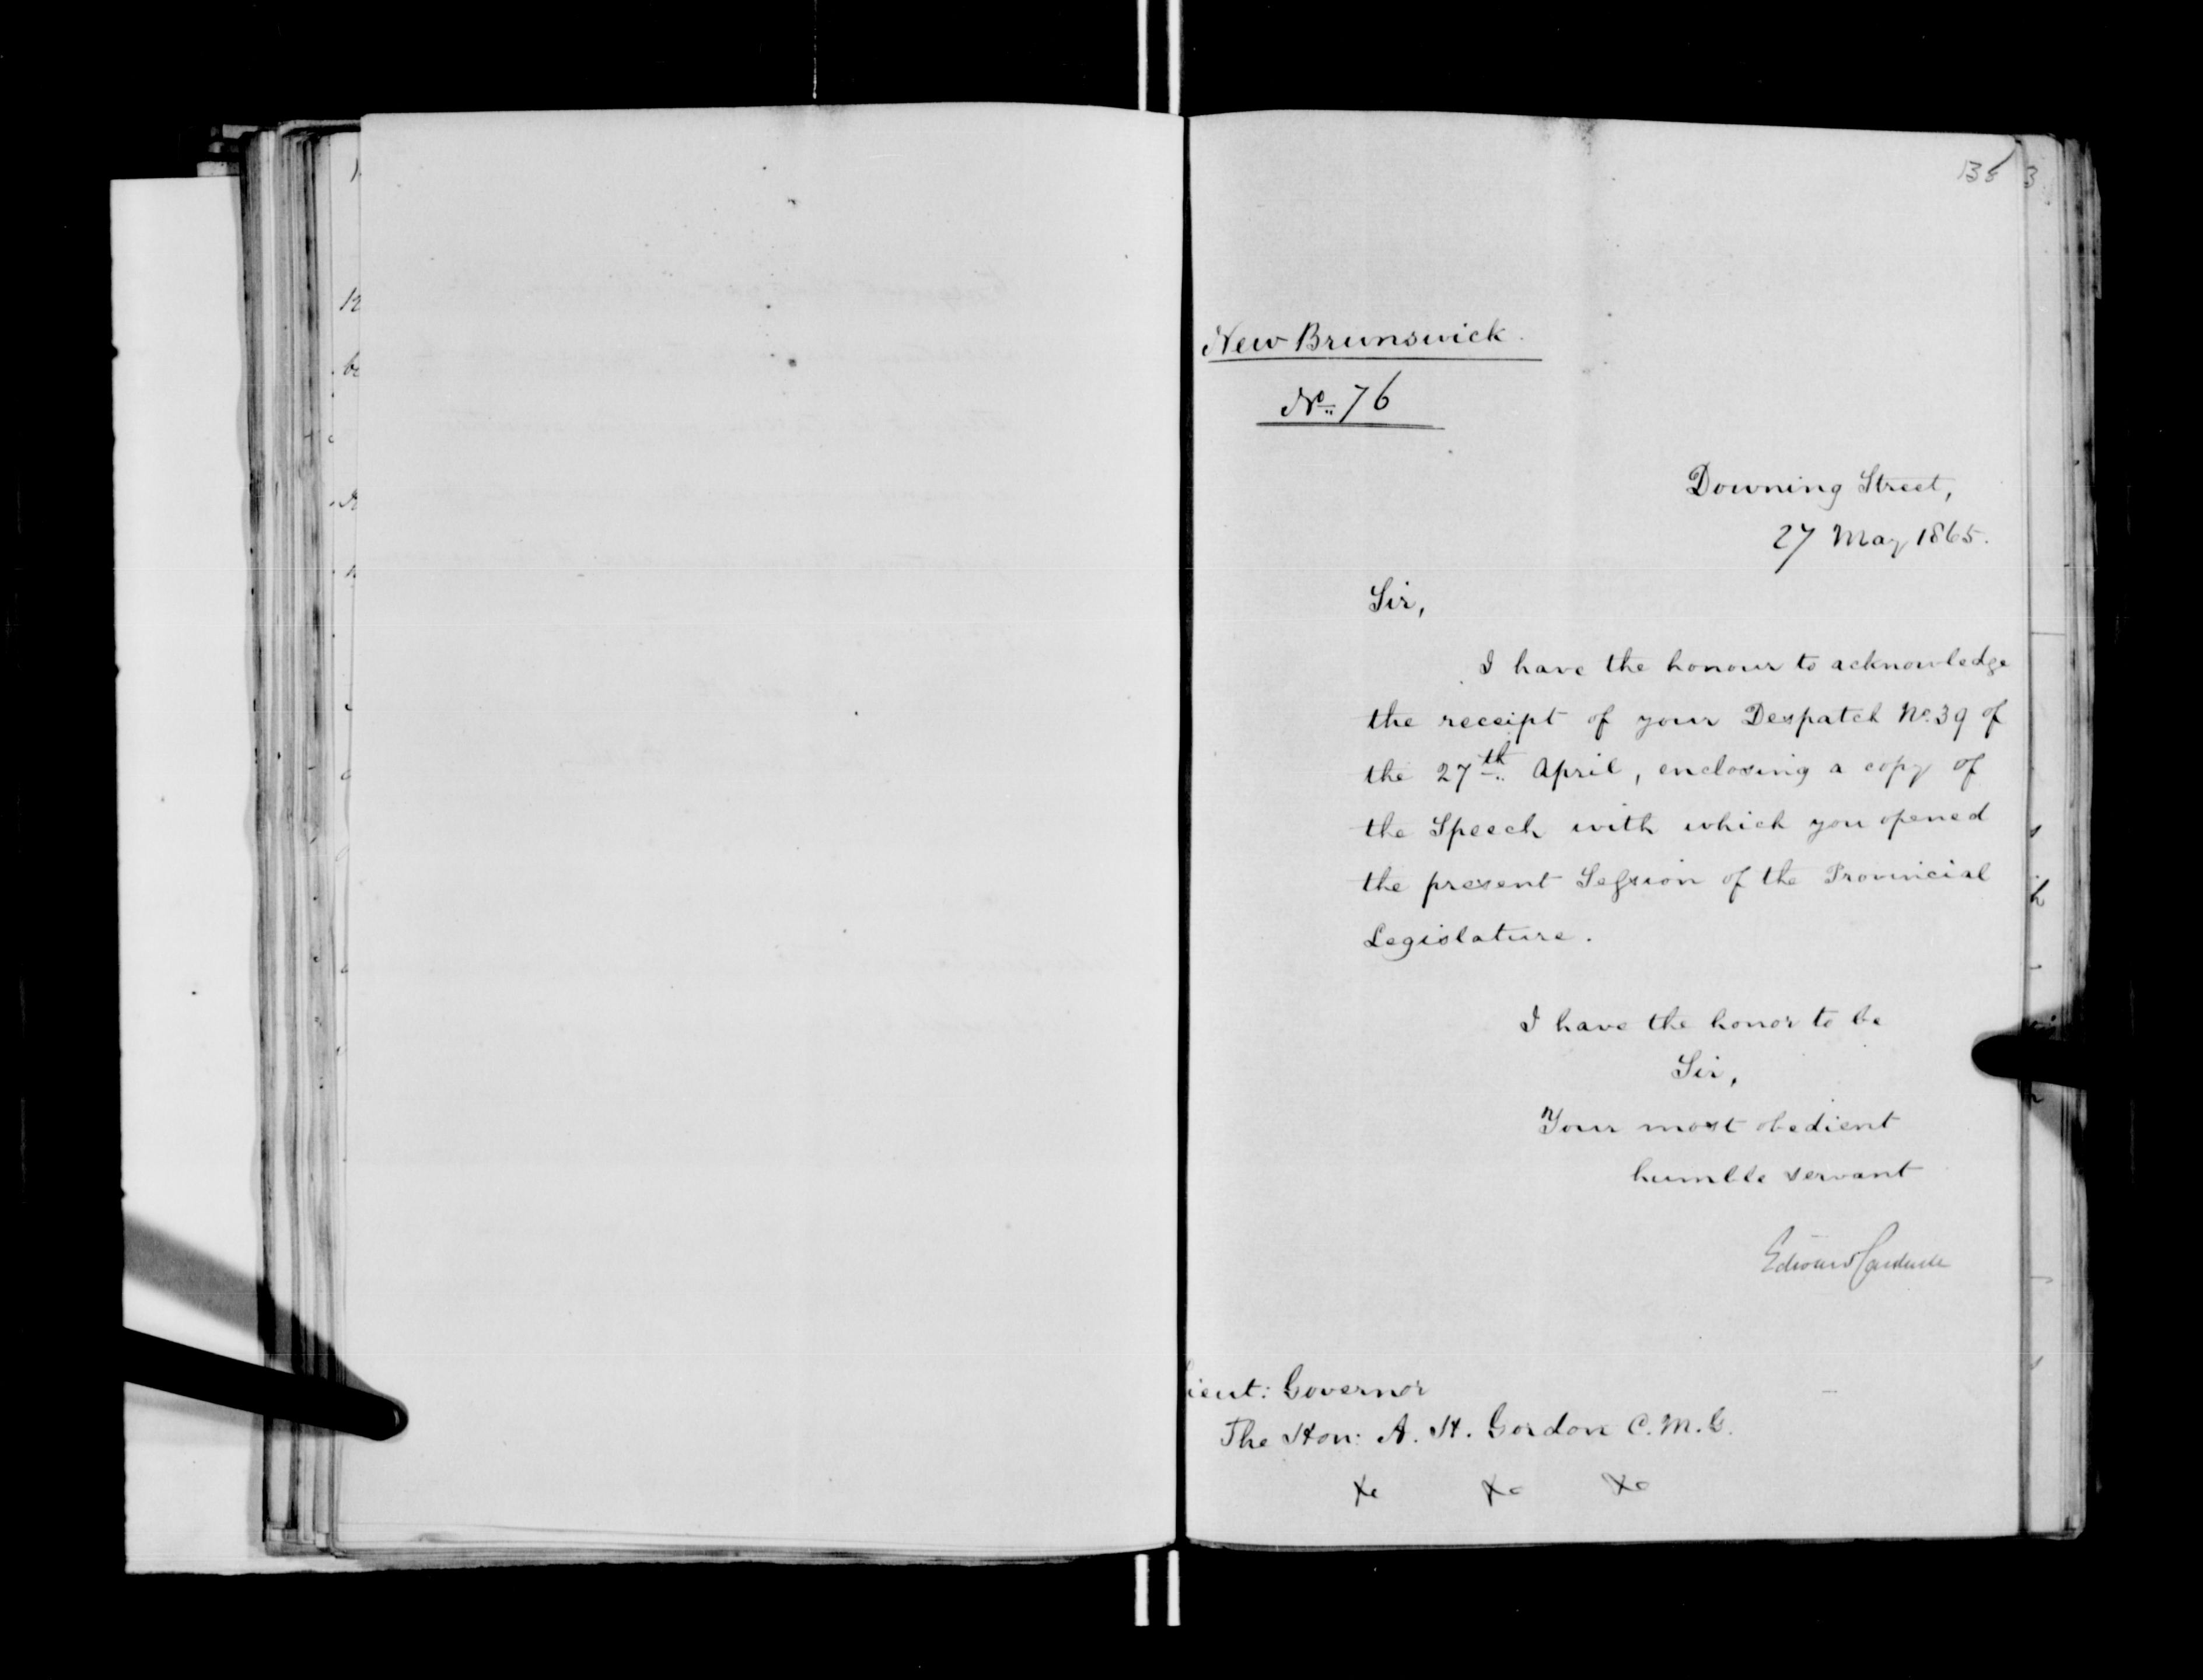 138
New Brunswick.
No. 76
Downing Street,
27 May 1865.
Sir,
I have the honour to acknowledge
the receipt of your Despatch No. 39 of
the 27th April, enclosing a copy of
the Speech with which you opened
the present Session of the Provincial
Legislature.
I have the honor to be
Sir,
Your most obedient
humble servant
Edward Cardwell
ieut: Governor
The Hon: A. H. Gordon C.M.G.
&c &c &c